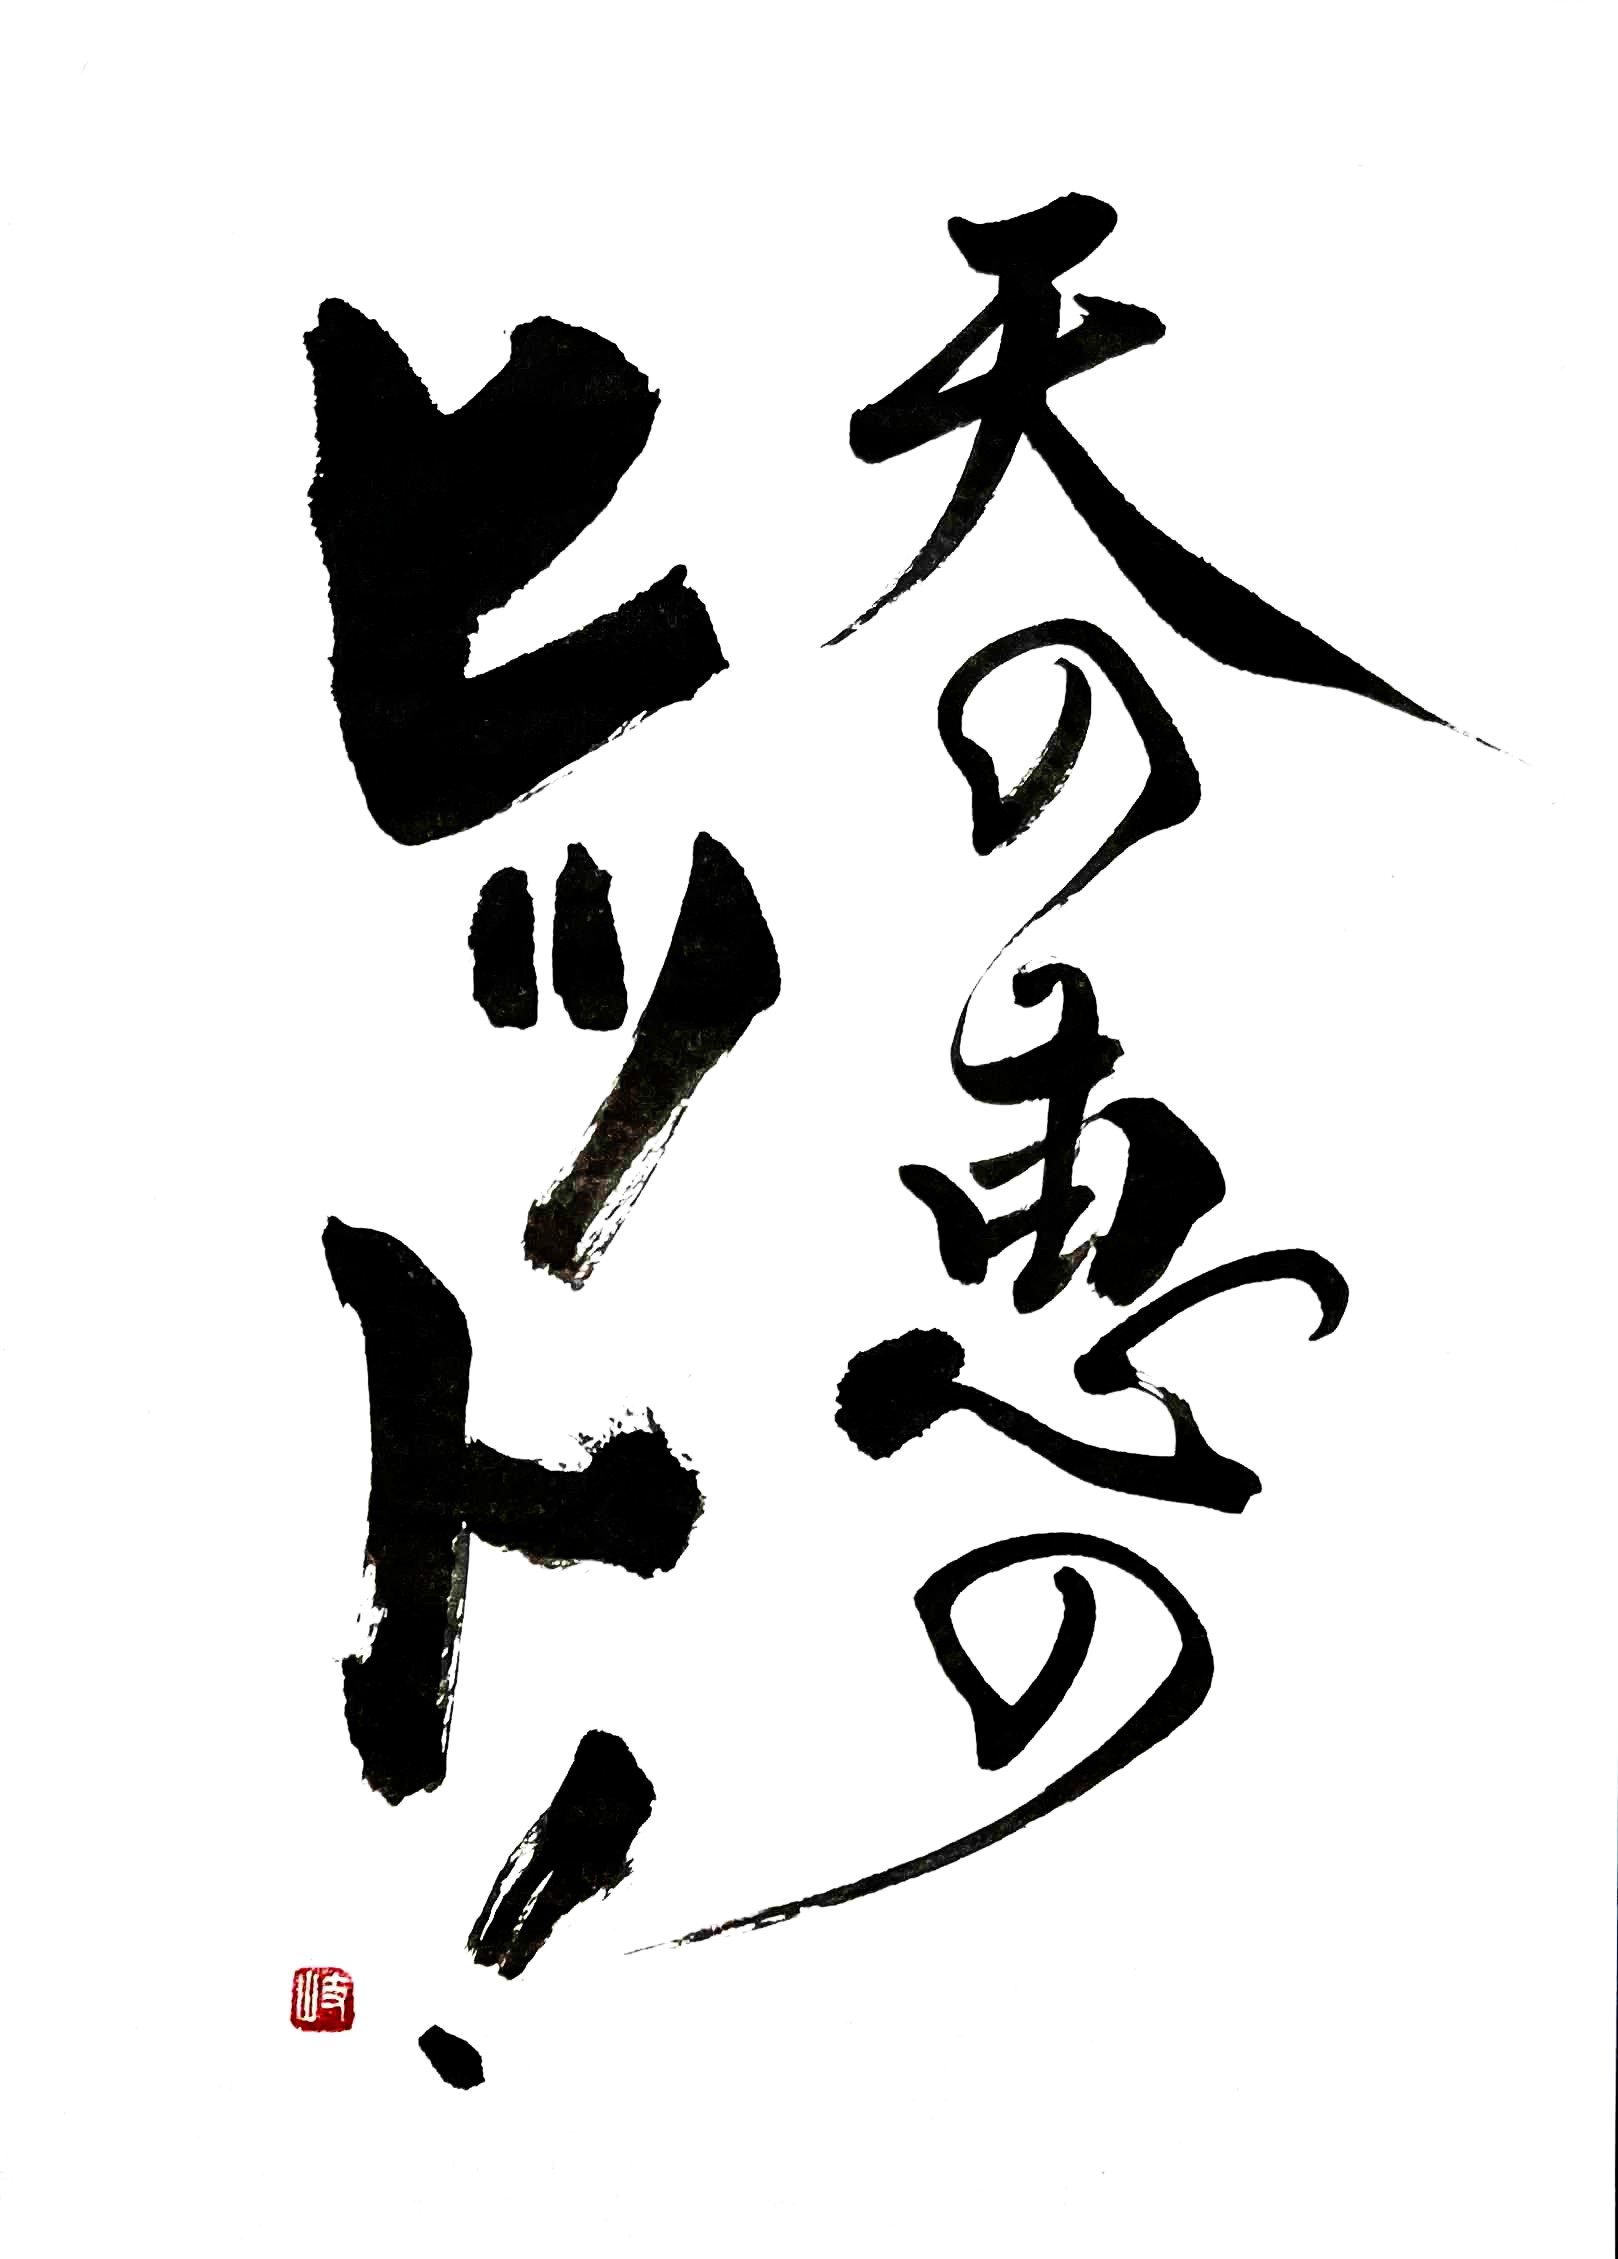 天の恵の
ヒット!
岐